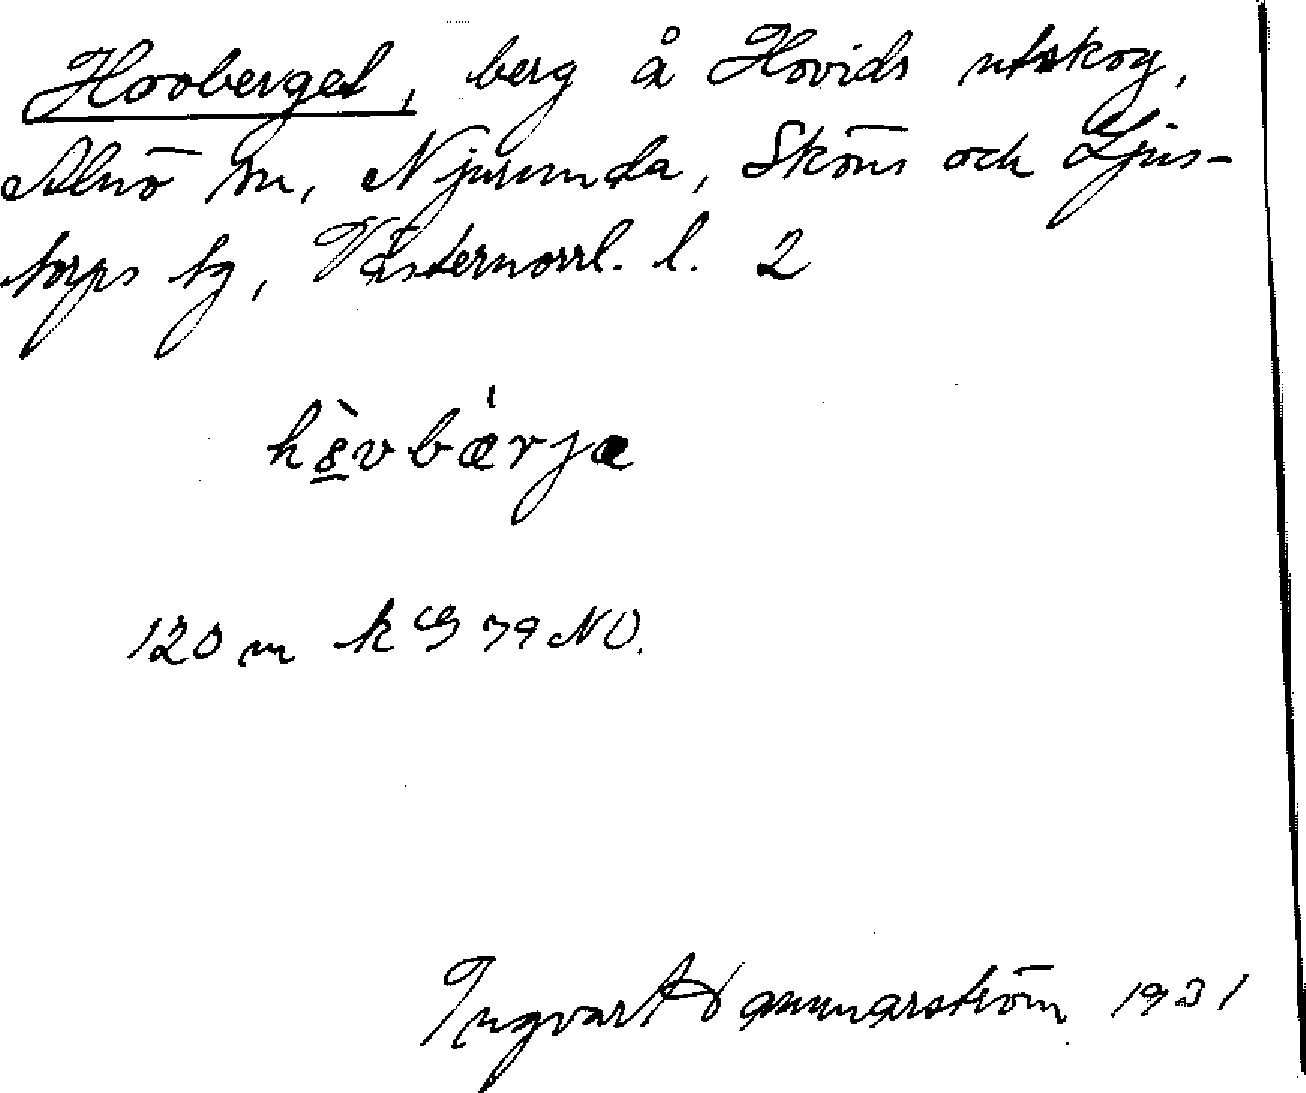 Hovberget, berg å Hovids utskog,
Alnö sn, Njurunda, Sköns och Ljus-
torps tg, Västernorrl. l. 2
120 m k G 79 NO.
Ingvart Hammarström 1931